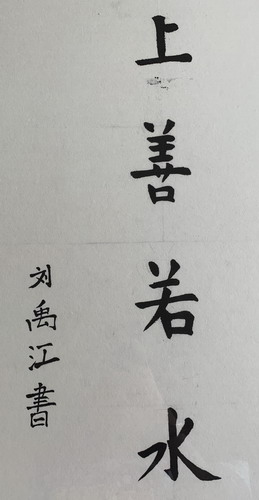 上善若水
刘禹江書